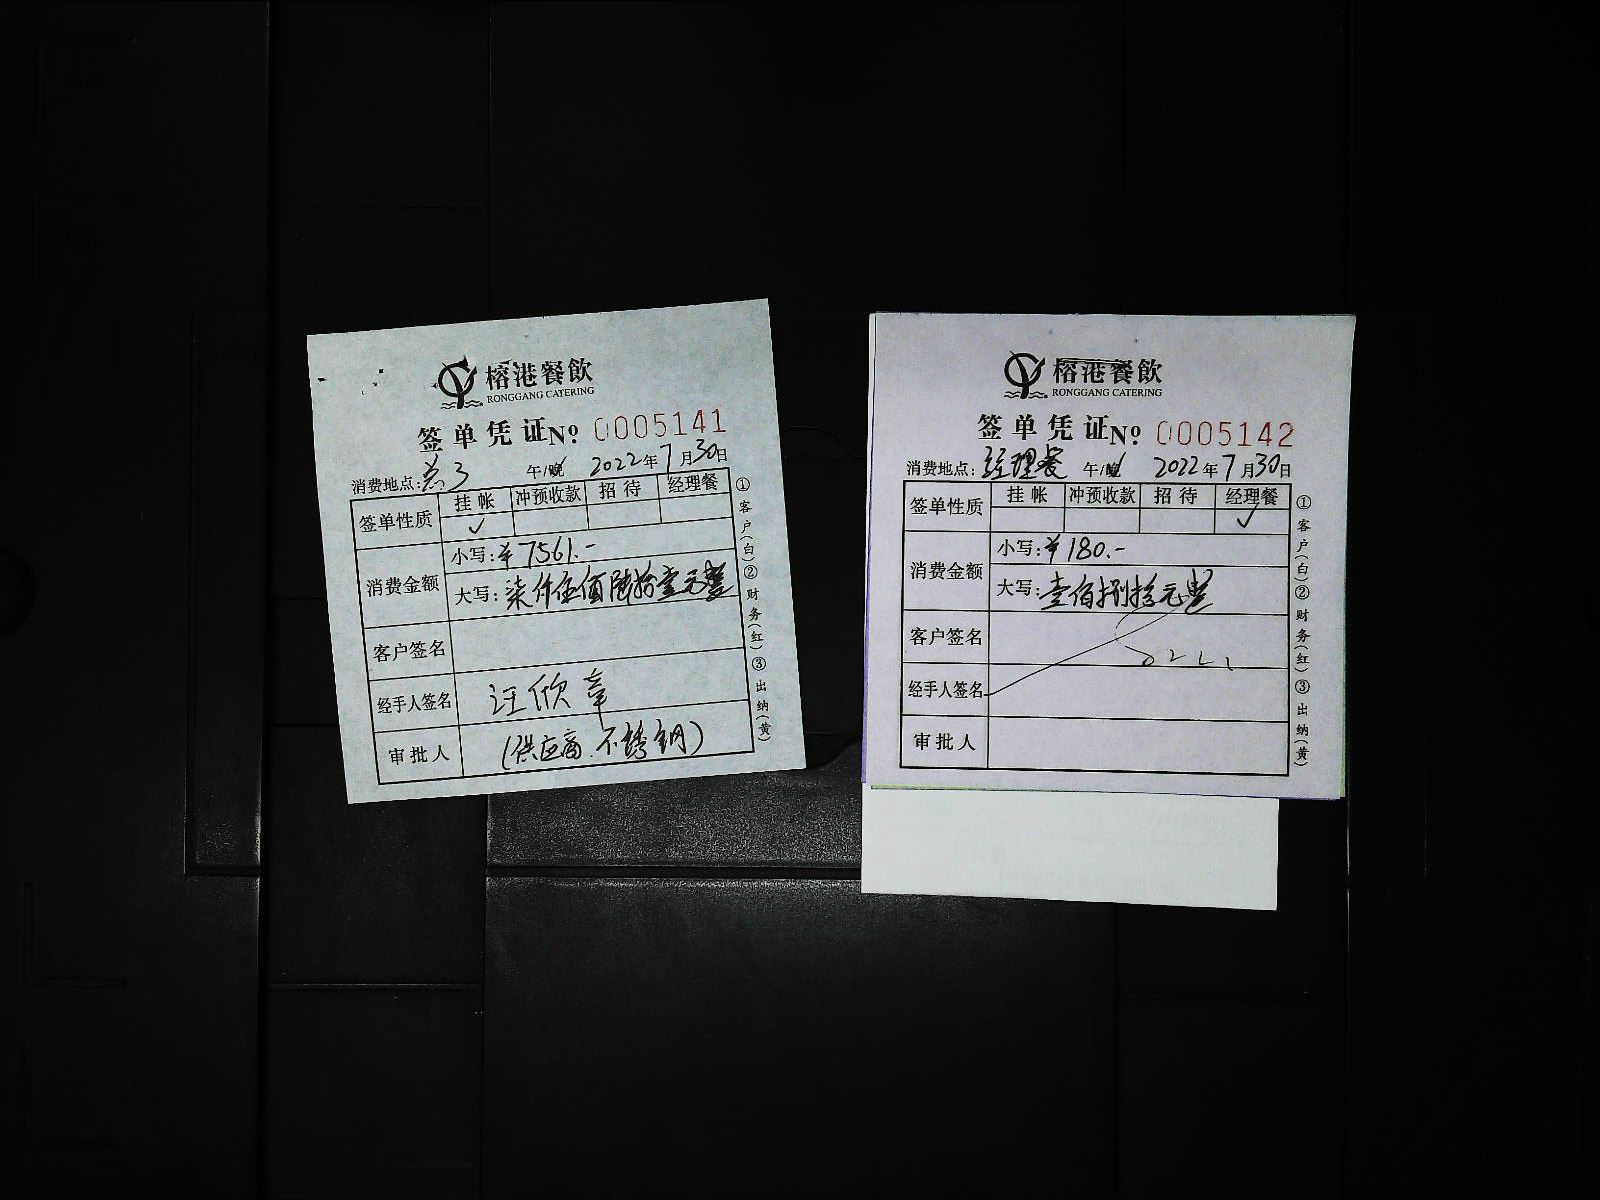 榕港餐飲
RONGGANG CATERING
签单凭证 No 0005141
消费地点: 3 午/晚 2022年7月30日
签单性质 挂帐 冲预收款 招待 经理餐
✓
消费金额 小写:¥7561.-
大写:柒仟伍佰陆拾壹元整
客户签名
经手人签名 汪欣章
审批人 (供应商.不锈钢)
①客户(白)②财务(红)③出纳(黄)
榕港餐飲
RONGGANG CATERING
签单凭证 No 0005142
消费地点:经理餐 午/晚 2022年7月30日
签单性质 挂帐 冲预收款 招待 经理餐
✓
消费金额 小写:¥180.-
大写:壹佰捌拾元整
客户签名
经手人签名
审批人
①客户(白)②财务(红)③出纳(黄)